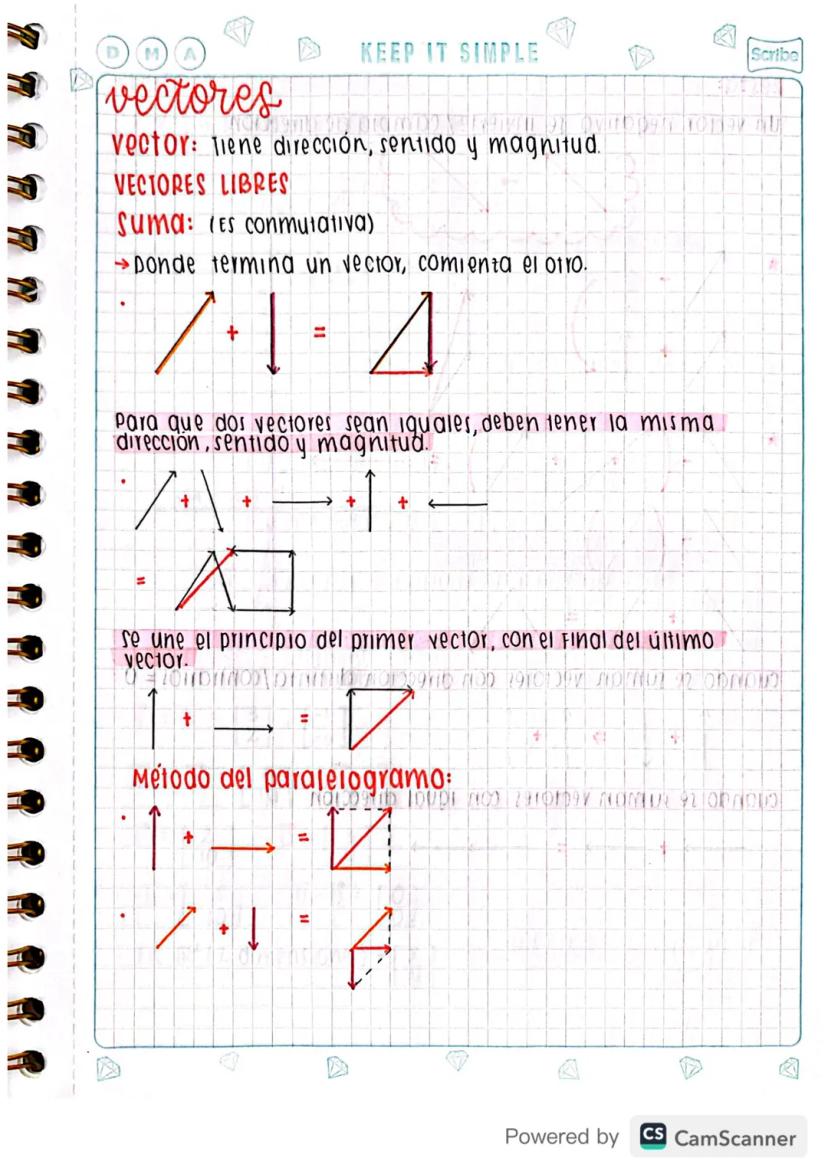 D M A
KEEP IT SIMPLE
Scribe
vectores
vector: Tiene dirección, sentido y magnitud.
VECTORES LIBRES
Suma: (Es conmutativa)
→Donde termina un vector, comienta el otro.
+ =
Para que dos vectores sean iguales, deben tener la misma
dirección, sentido y magnitud.
+ + + +
=
Se une el principio del primer vector, con el Final del último
vector.
+ =
Método del paralelogramo:
+ =
+ =
Powered by CS CamScanner